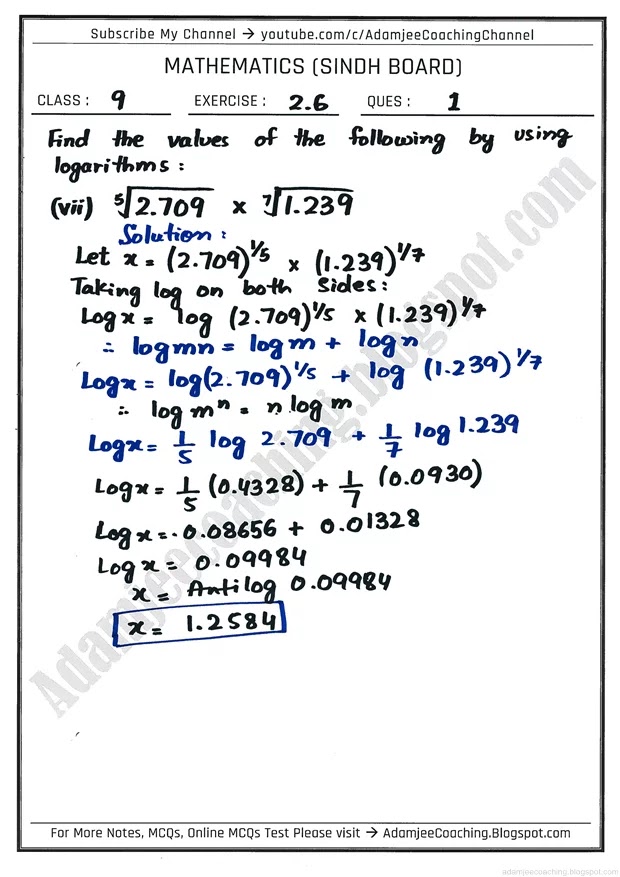 Subscribe My Channel → youtube.com/c/AdamjeeCoachingChannel
MATHEMATICS (SINDH BOARD)
CLASS : 9 EXERCISE : 2.6 QUES : 1
Find the values of the following by using
logarithms :
(vii) ⁵√2.709 × ⁷√1.239
Solution :
Let x = (2.709)^1/5 × (1.239)^1/7
Taking log on both sides :
Log x = log (2.709)^1/5 × (1.239)^1/7
∴ log mn = log m + log n
Log x = log(2.709)^1/5 + log (1.239)^1/7
∴ log m^n = n log m
Log x = 1/5 log 2.709 + 1/7 log 1.239
Log x = 1/5 (0.4328) + 1/7 (0.0930)
Log x = 0.08656 + 0.01328
Log x = 0.09984
x = Antilog 0.09984
x = 1.2584
Adamjeecoaching.blogspot.com
For More Notes, MCQs, Online MCQs Test Please visit → AdamjeeCoaching.Blogspot.com
adamjeecoaching.blogspot.com